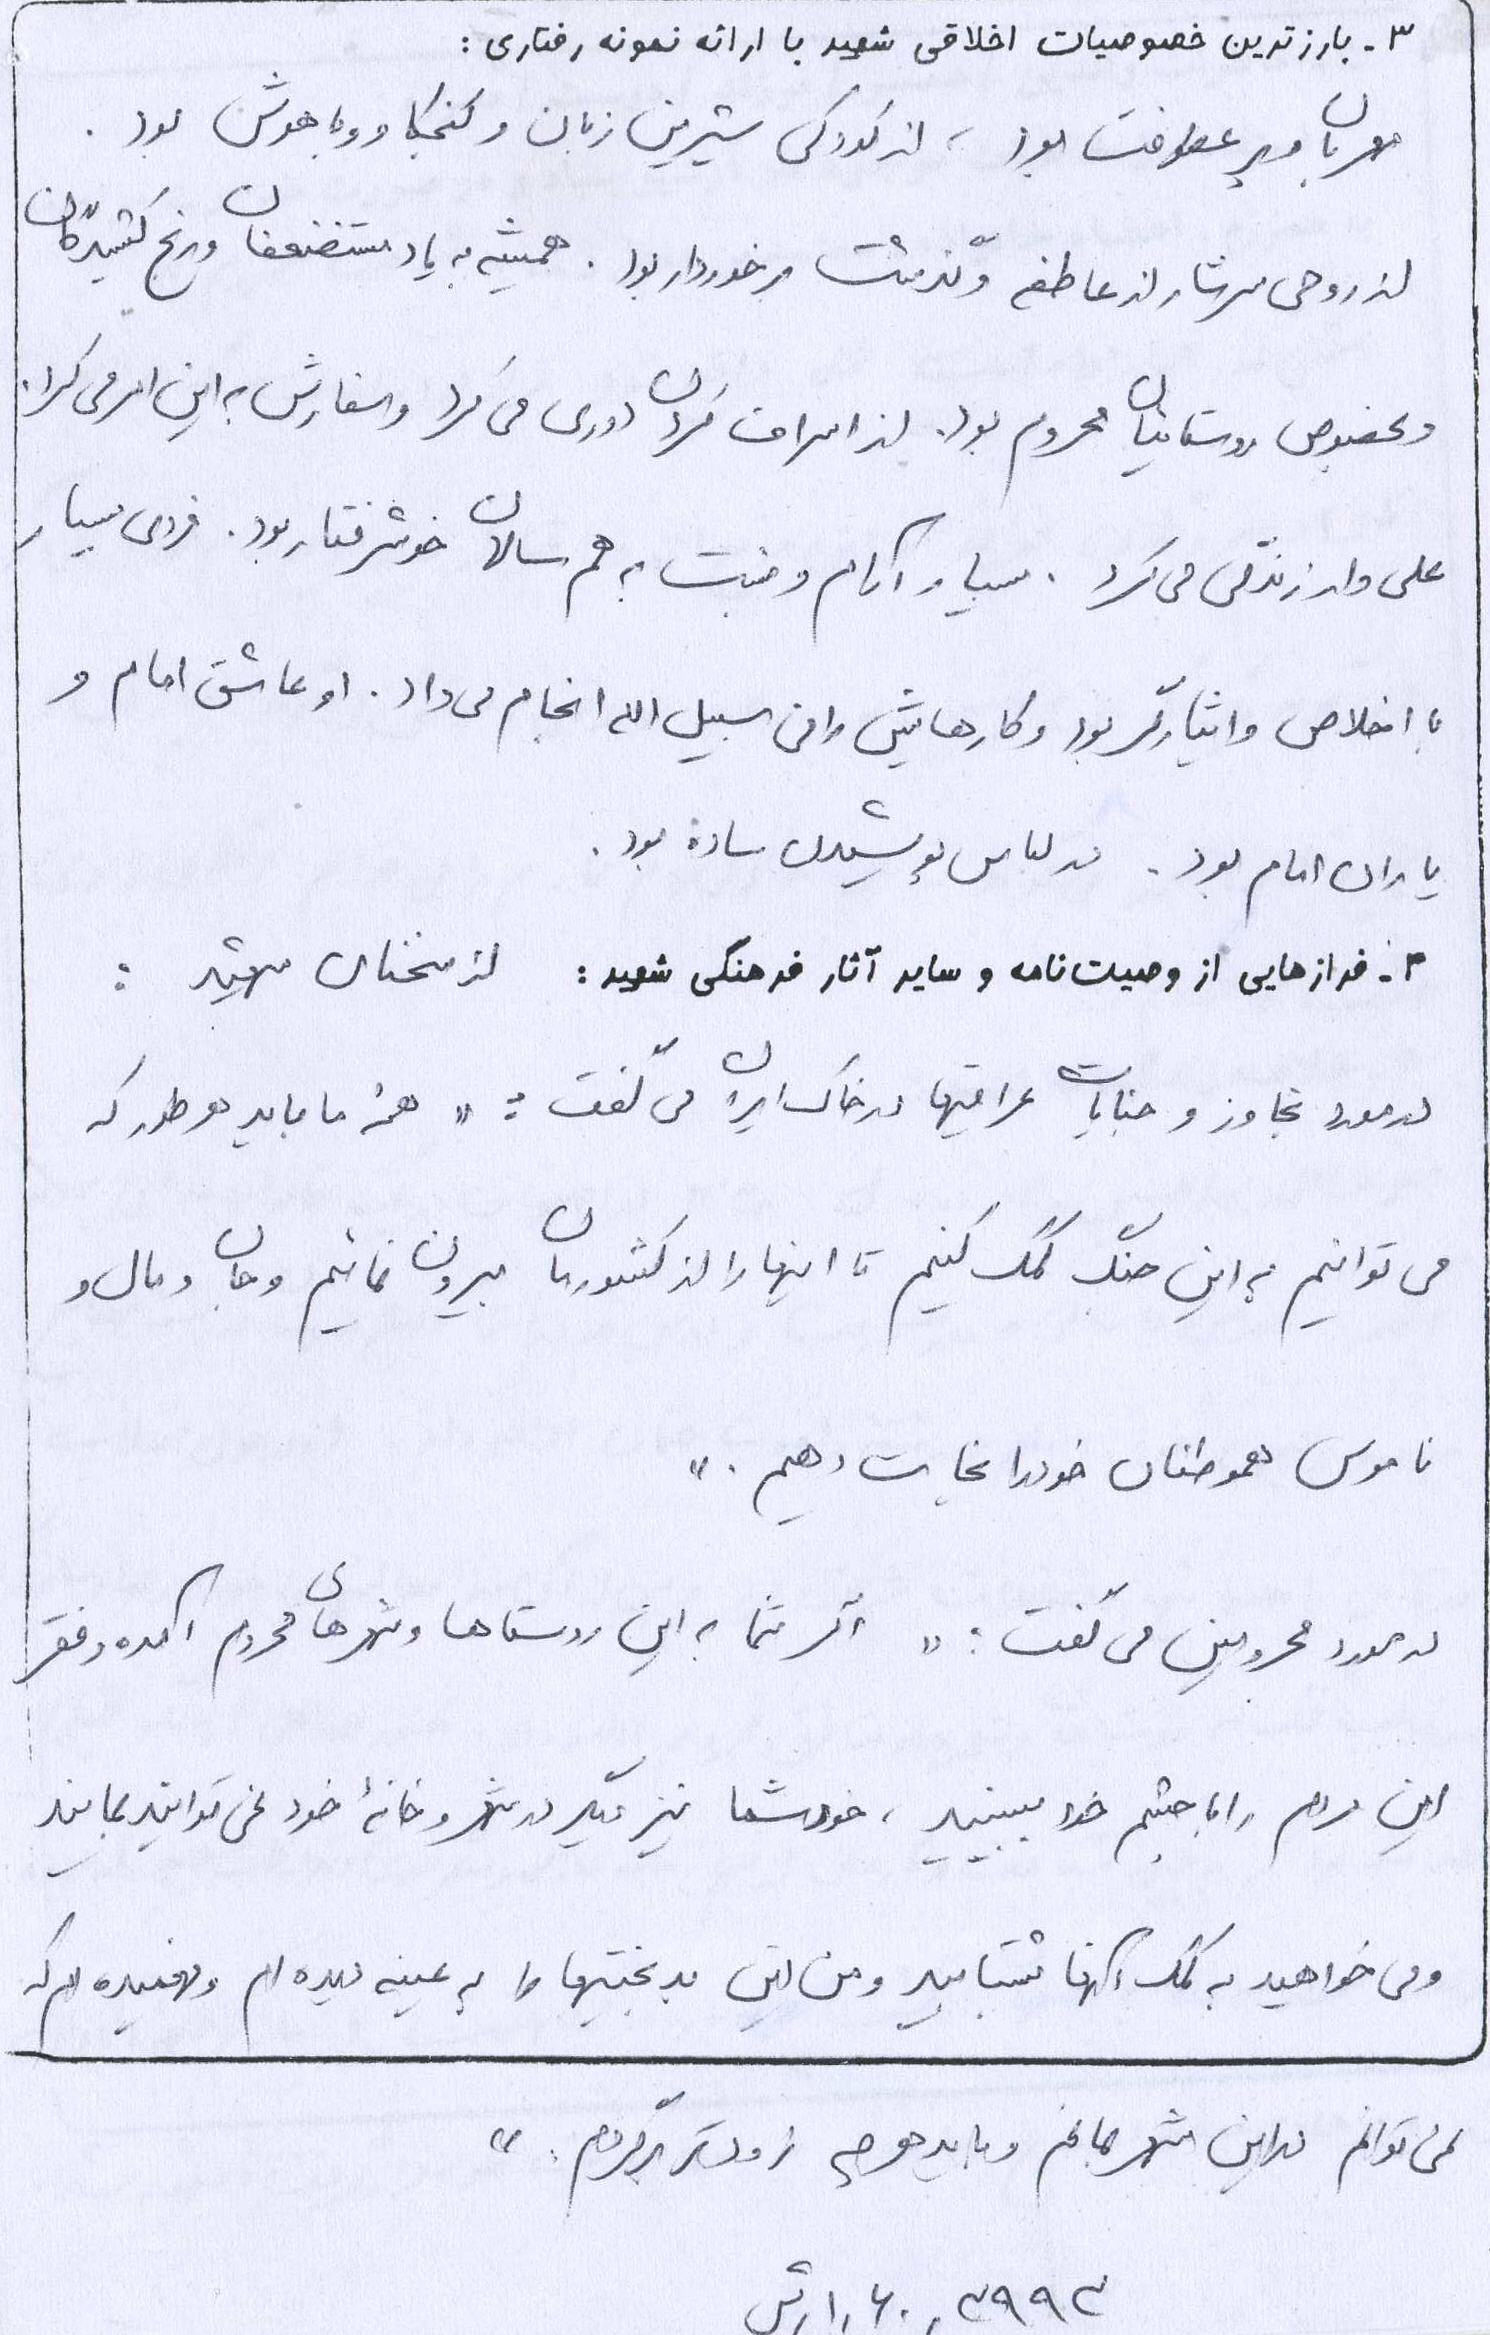 ۳ـ بارزترین خصوصیات اخلاقی شهید با ارائه نمونه رفتاری :
مهربان و پر عطوفت بود ، از کودکی شیرین زبان و کنجکاو و باهوش بود .
از روحی سرشار از عاطفه و گذشت برخوردار بود . همیشه به یاد مستضعفان و رنج کشیدگان
و بخصوص روستائیان محروم بود . از اسراف کردن دوری می کرد و سفارش به این امر می کرد .
علی وار زندگی می کرد . بسیار آرام و نسبت به هم سالان خوشرفتار بود . فردی بسیار
با اخلاص و ایثارگر بود و کارهایش را فی سبیل الله انجام می داد . او عاشق امام و
یاران امام بود . در لباس پوشیدن ساده بود .
۴ـ فرازهایی از وصیت‌نامه و سایر آثار فرهنگی شهید : از سخنان شهید :
در مورد تجاوز و جنایات عراقیها در خاک ایران می گفت : « همۀ ما باید هر طور که
می توانیم به این جنگ کمک کنیم تا اینها را از کشورمان بیرون نمائیم و جان و مال و
ناموس هموطنان خود را نجات دهیم . »
در مورد محرومین می گفت : « اگر شما به این روستاها و شهرهای محروم آمده و فقر
این مردم را با چشم خود ببینید ، خود شما نیز دیگر در شهر و خانۀ خود نمی توانید بمانید
و می خواهید به کمک آنها بشتابید و من این بدبختیها را به عینه دیده ام و فهمیده ام که
نمی توانم در این شهر بمانم و باید هر چه زودتر برگردم . »
۳۹۹۳ , ۶۰ , ارتش